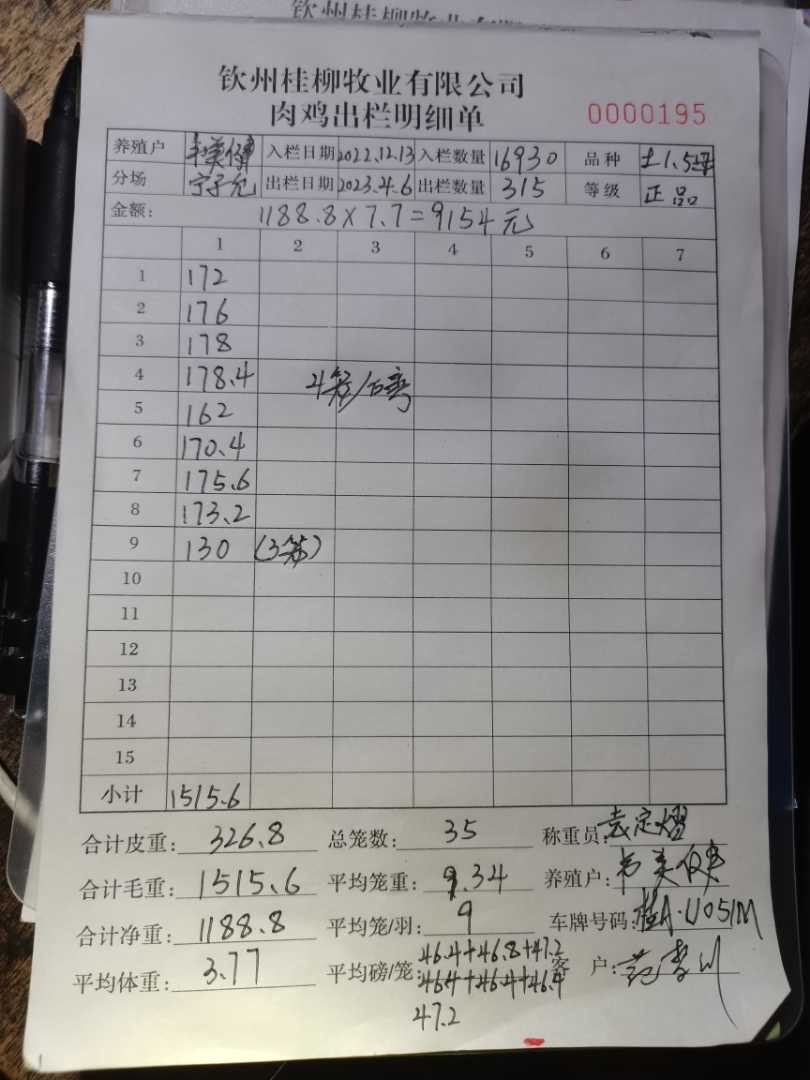 钦州桂柳牧业有限公司
肉鸡出栏明细单 0000195
养殖户 韦美健 入栏日期 2022.12.13 入栏数量 16930 品种 土1.5
分场 出栏日期 2023.4.6 出栏数量 315 等级 正品
金额: 1188.8×7.7=9154元
1 2 3 4 5 6 7
1 172
2 176
3 178
4 178.4 4笼/
5 162
6 170.4
7 175.6
8 173.2
9 130 (3笼)
10
11
12
13
14
15
小计 1515.6
合计皮重: 326.8 总笼数: 35 称重员: 袁定熠
合计毛重: 1515.6 平均笼重: 9.34 养殖户: 韦美健
合计净重: 1188.8 平均笼/羽: 9 车牌号码: 桂A·U051M
平均体重: 3.77 平均磅/笼: 46.4+46.8+47.2 客户:
46.4+46.4+46.4
47.2